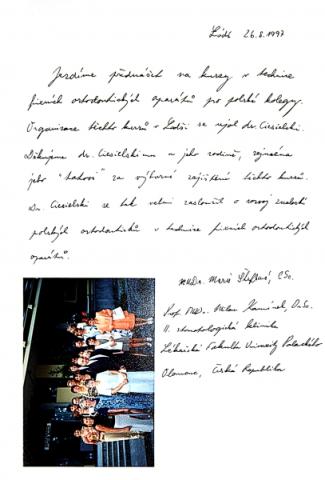 Lódź 26.8.1997
Jezdíme přednášet na kursy v technice
fixních ortodontických aparátů pro polské kolegy.
Organizace těchto kursů v Lodži se ujal dr. Ciesielski.
Děkujeme dr. Ciesielskimu a jeho rodině, zejména
jeho "tatovi" za výborné zajištění těchto kursů.
Dr. Ciesielski se tak velmi zasloužil o rozvoj znalostí
polských ortodontistů v technice fixních ortodontických
aparátů.
MUDr. Marie Štefková, CSc.
Prof. MUDr. Milan Kamínek, DrSc.
II. stomatologická klinika
Lékařská Fakulta Univerzity Palackého
Olomouc, Česká Republika